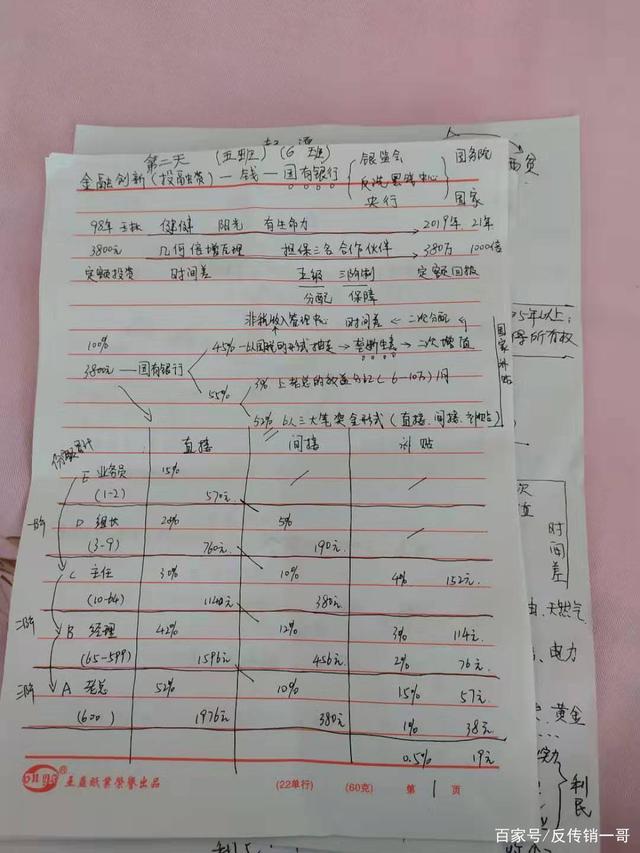 第二天 (五班) (6班)
金融创新(投融资)—钱—国有银行
银监会
反洗黑钱中心
央行
国务院
国家
98年 健健 阳光 有生命力 → 2019年 21年
3800元 几何倍增原理 担保三名合作伙伴 → 380万 1000倍
定额投资 时间差 五级 三阶制 定额回报
分配 保障
非税收入管理中心 时间差 ← 二次分配
100% 45%—以国税的形式抽走 → → 二次增值
3800元—国有银行
55% 3% 上老总的 (6-10万)/月
52% 以三大笔奖金形式(直接、间接、补贴)
国家补贴
直接 间接 补贴
E 业务员 15%
(1-2) 570元
一阶 D 组长 20% 5%
(3-9) 760元 190元
C 主任 30% 10% 4% 152元
(10-64) 1140元 380元
二阶 B 经理 42% 12% 3% 114元
(65-599) 1596元 456元 2% 76元
三阶 A 老总 52% 10% 15% 57元
(600) 1976元 380元 1% 38元
0.5% 19元
玉益纸业荣誉出品 (22单行) (60克) 第 1 页
5年以上:
得所有权
时间差
天然气
电力
黄金
利民
百家号/反传销一哥